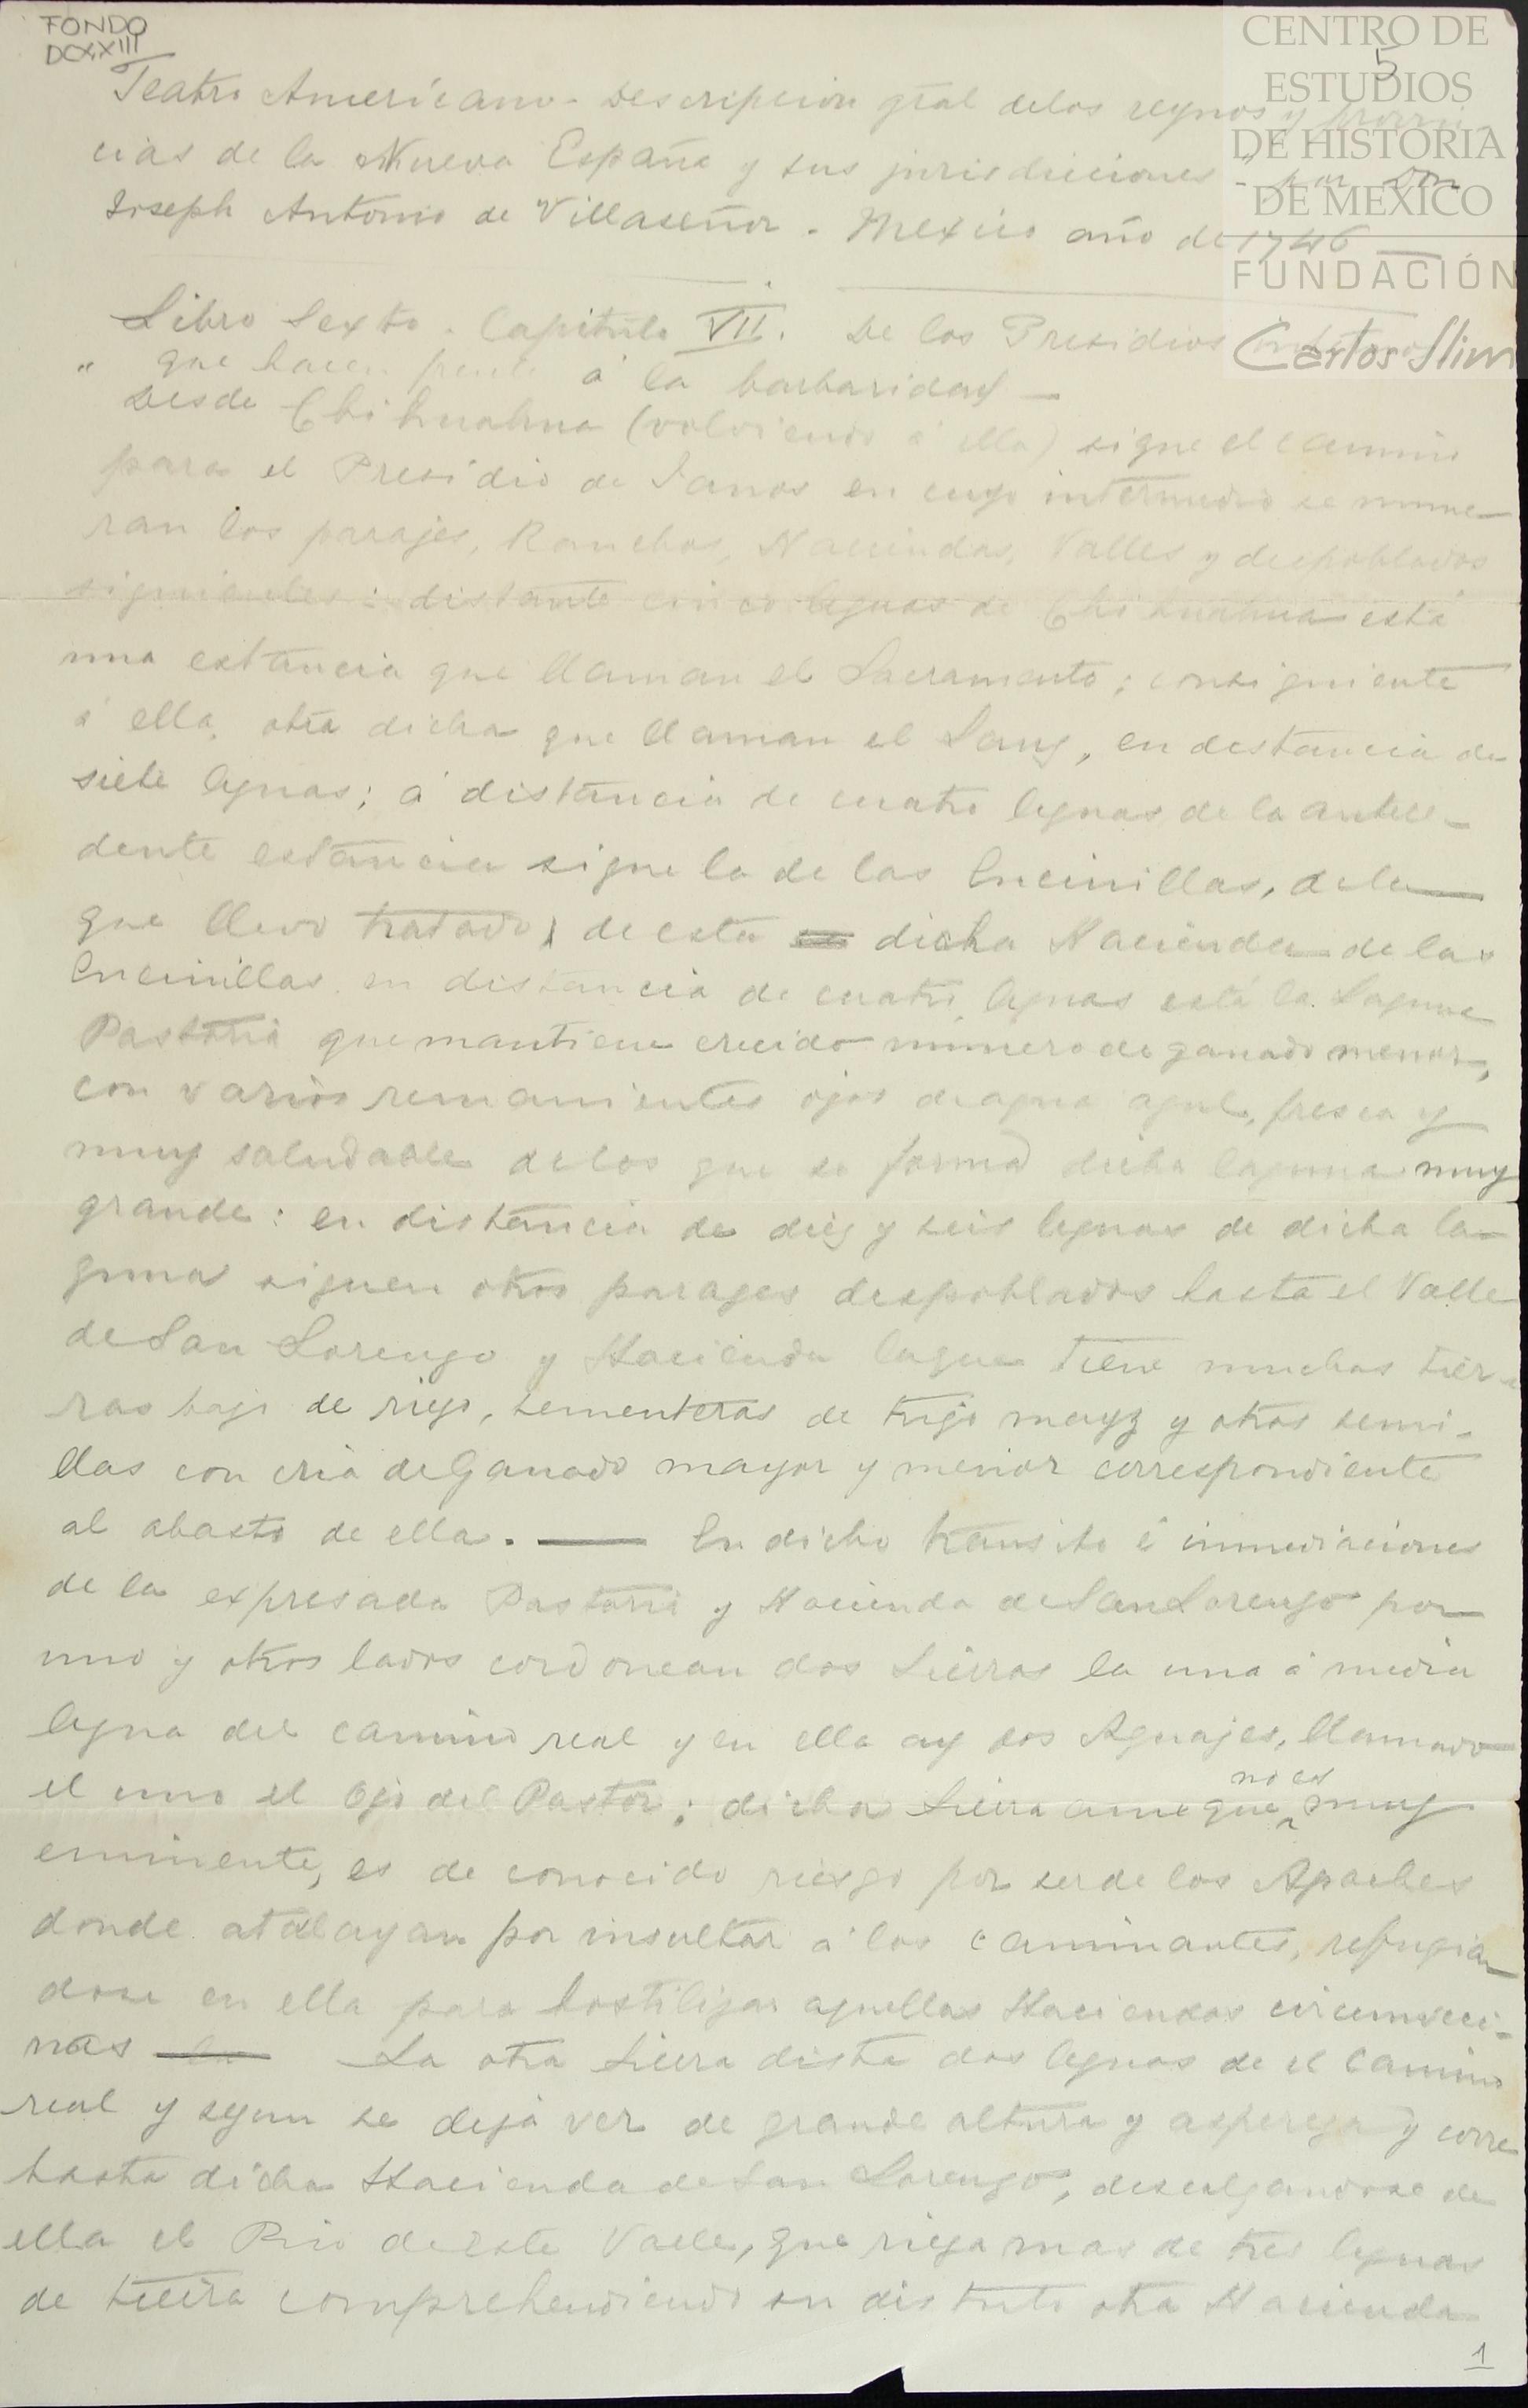 FONDO
DCXXIII
CENTRO DE
ESTUDIOS
DE HISTORIA
DE MEXICO
FUNDACIÓN
Carlos Slim
5
Teatro Americano - Descripcion gral delos reynos y provin-
cias de la Nueva España y sus jurisdicciones - por Dn
Joseph Antonio de Villaseñor. Mexico año de 1746
Libro Sexto. Capitulo VII. De los Presidios
" que hacen frente á la barbaridad —
Desde Chihuahua (volviendo á ella) sigue el camino
para el Presidio de Janos en cuyo intermedio se nume-
ran los parajes, Ranchos, Haciendas, Valles y despoblados
siguientes: distante cinco leguas de Chihuahua está
una estancia que llaman el Sacramento; consiguiente
á ella, otra dicha que llaman el Sauz, en distancia de
siete leguas; á distancia de cuatro leguas de la antece-
dente estancia sigue la de las Encinillas, dela
que llevo tratado; de esta dicha Hacienda de las
Encinillas en distancia de cuatro leguas está la Laguna
Pastoria que mantiene crecido numero de ganado menor,
con varios remanientes ojos de agua azul, fresca y
muy saludable delos que se forma dicha laguna muy
grande: en distancia de diez y seis leguas de dicha la-
guna siguen otros parages despoblados hasta el Valle
de San Lorenzo y Hacienda laque tiene muchas tier-
ras bajo de riego, sementeras de trigo mayz y otras semi-
llas con cria de Ganado mayor y menor correspondiente
al abasto de ella. — En dicho transito é inmediaciones
de la expresada Pastoria y Hacienda de San Lorenzo por
uno y otros lados cordonean dos Sierras la una á media
legua del camino real y en ella ay dos Aguajes, llamado
el uno el Ojo del Pastor; dicha Sierra aunque no es muy
eminente, es de conocido riesgo por ser de los Apaches
donde atalayan por insultar á los caminantes, refugian
dose en ella para hostilizar aquellas Haciendas circunveci-
nas La otra Sierra dista dos leguas de el camino
real y segun se deja ver de grande altura y aspereza y corre
hasta dicha Hacienda de San Lorenzo, descolgandose de
ella el Rio de este Valle, que riega mas de tres leguas
de tierra comprehendiendo en distrito otra Hacienda
1